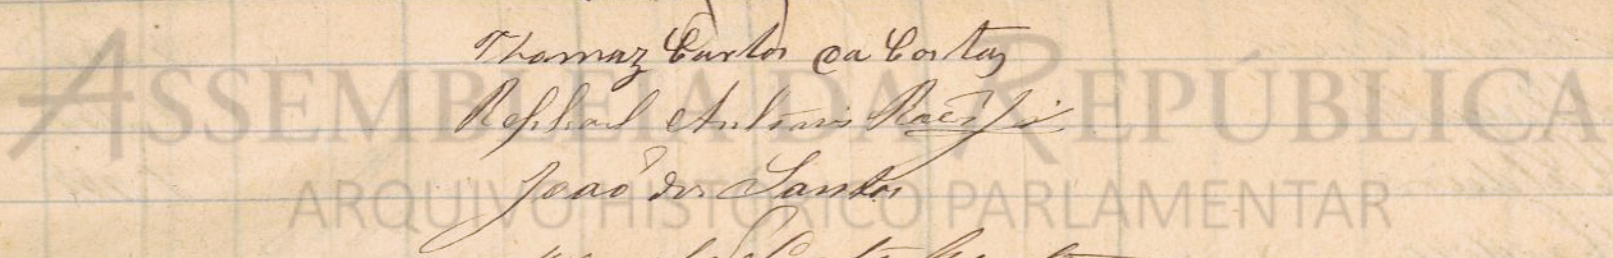 Thomaz Carlos da Costa
Raphael Antonio
João dos Santos
ASSEMBLEIA DA REPÚBLICA
ARQUIVO HISTÓRICO PARLAMENTAR